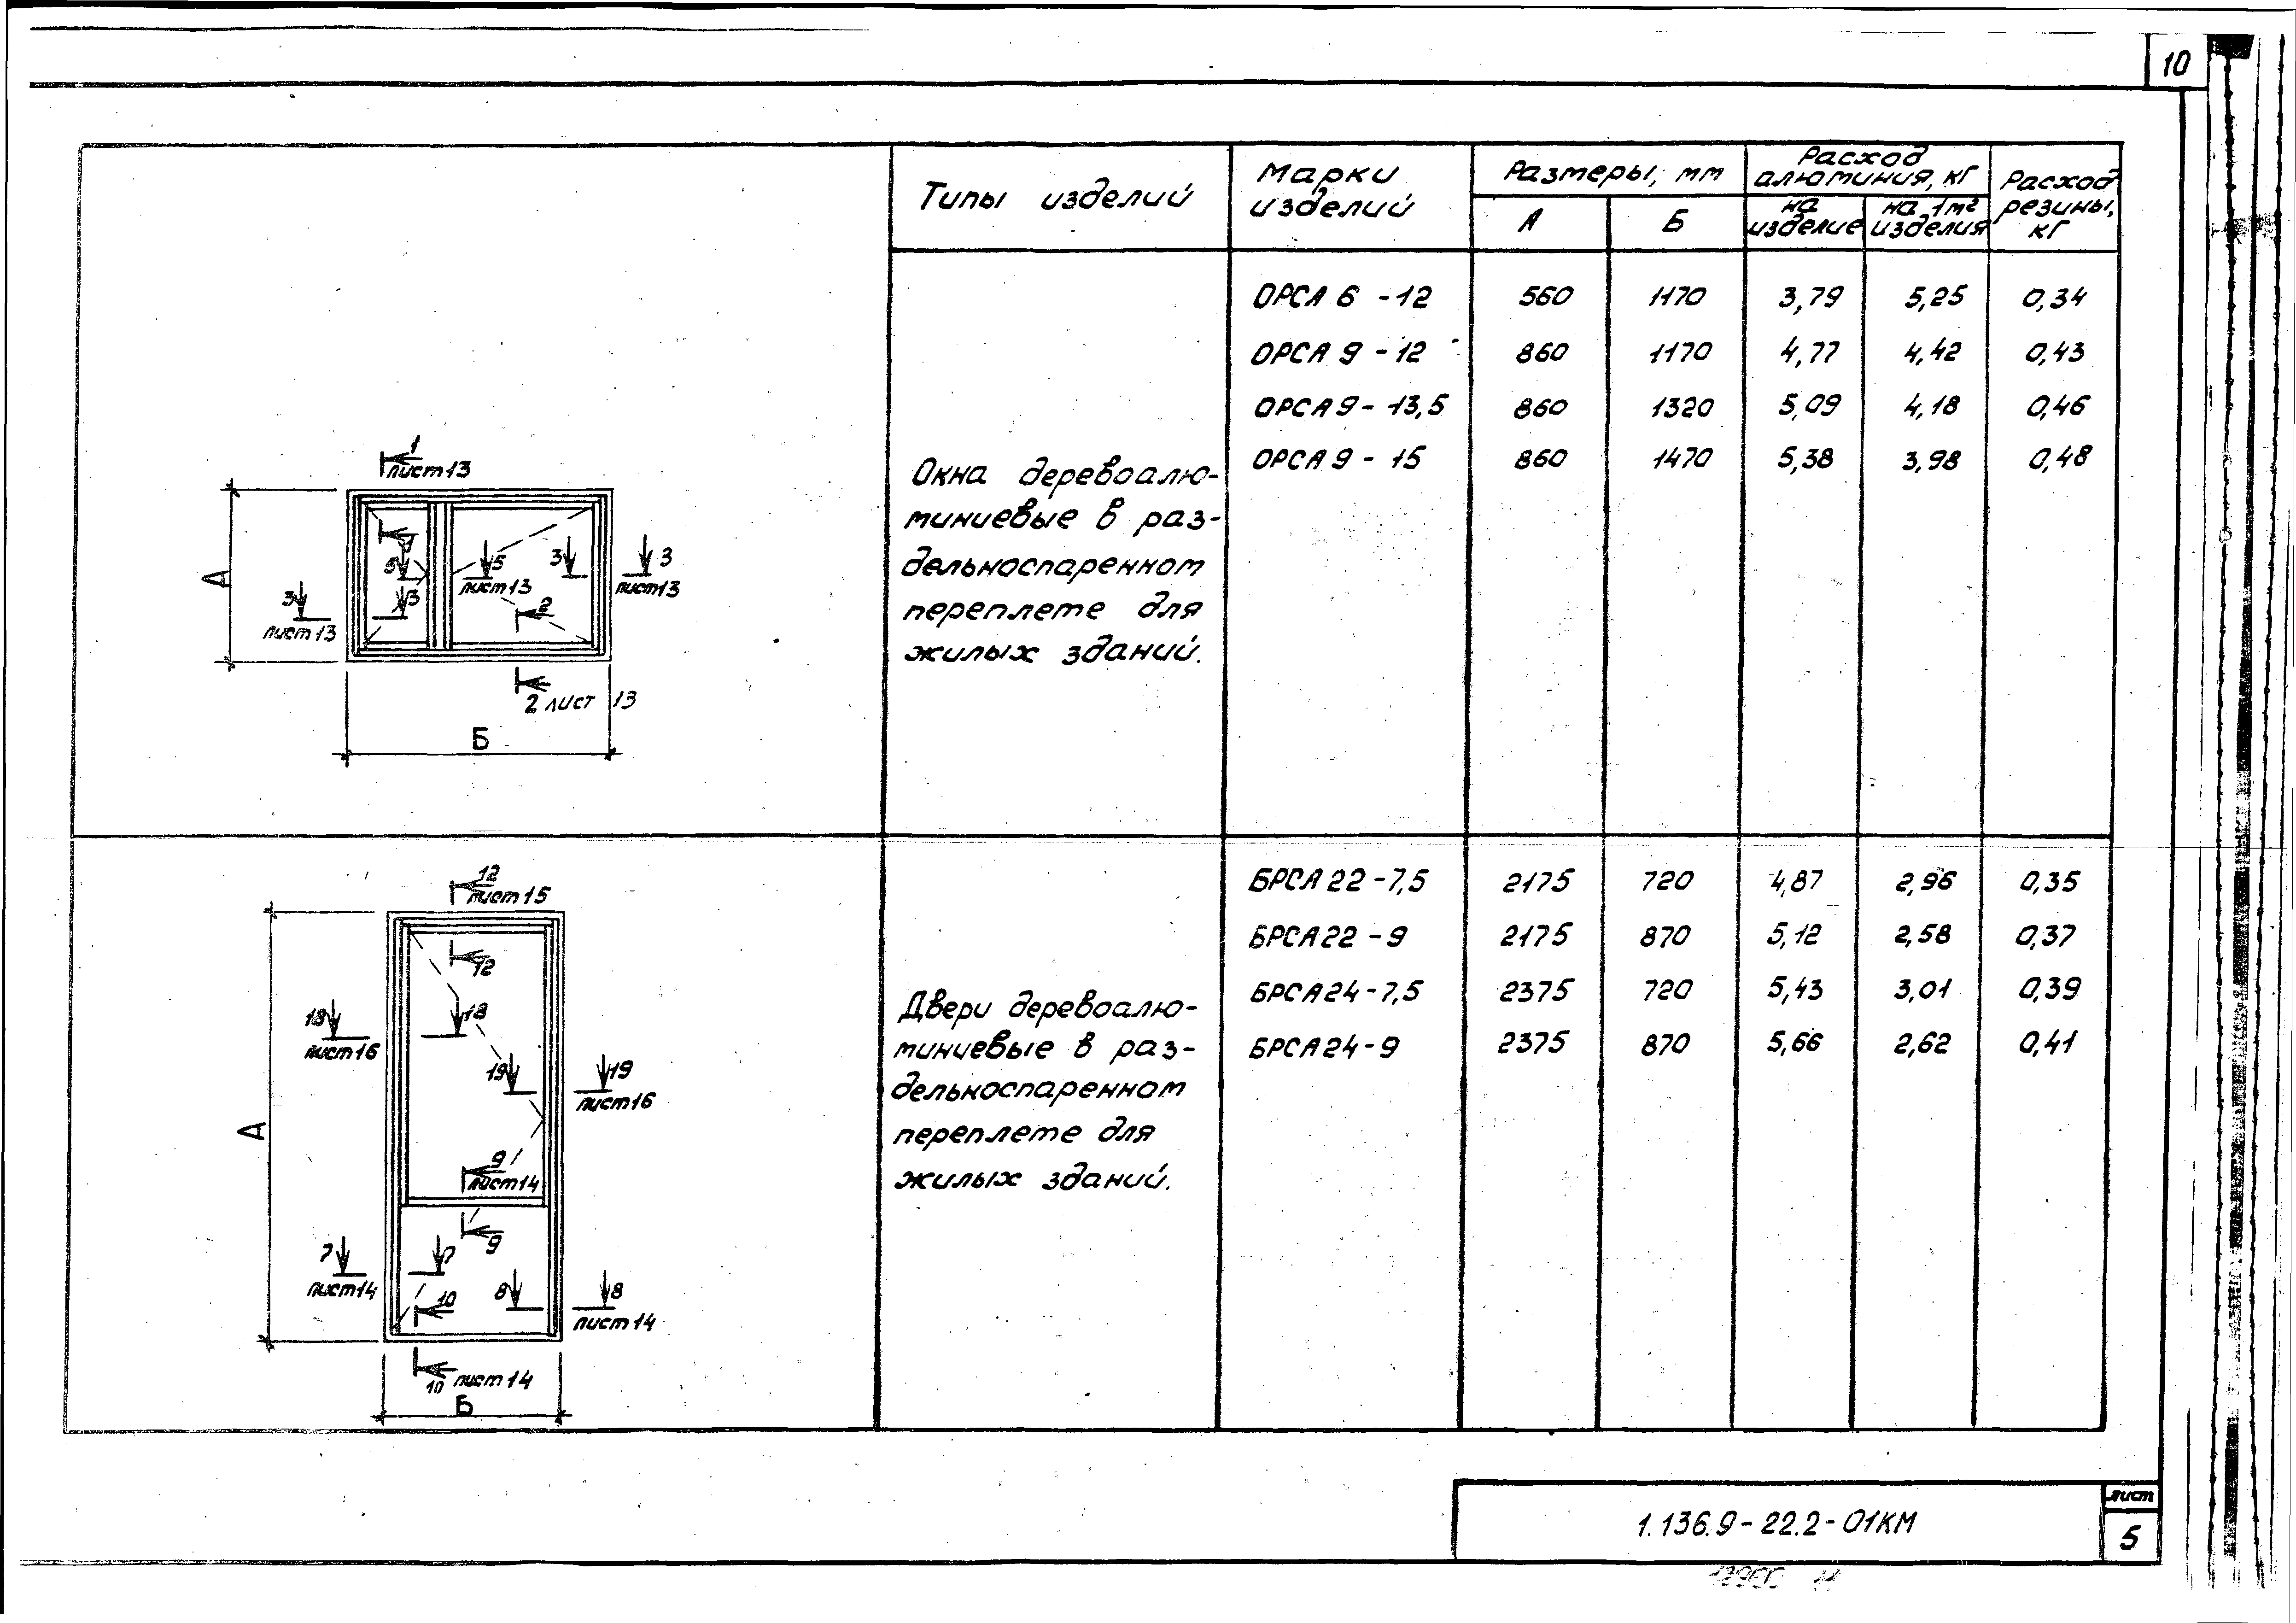 10
Типы изделий
Марки
изделий
Размеры, мм
А
Б
Расход
алюминия, кг
на
изделие
на 1м²
изделия
Расход
резины,
кг
1
лист 13
А
1
5
5
лист 13
3
3
лист 13
3
лист 13
3
2
2 лист 13
Б
Окна деревоалю-
миниевые в раз-
дельноспаренном
переплете для
жилых зданий.
ОРСА 6 - 12 560 1170 3,79 5,25 0,34
ОРСА 9 - 12 860 1170 4,77 4,42 0,43
ОРСА 9 - 13,5 860 1320 5,09 4,18 0,46
ОРСА 9 - 15 860 1470 5,38 3,98 0,48
12
лист 15
12
18
лист 16
18
19
19
лист 16
А
9
лист 14
9
7
лист 14
7
10
8
8
лист 14
10 лист 14
Б
Двери деревоалю-
миниевые в раз-
дельноспаренном
переплете для
жилых зданий.
БРСА 22 - 7,5 2175 720 4,87 2,96 0,35
БРСА 22 - 9 2175 870 5,12 2,58 0,37
БРСА 24 - 7,5 2375 720 5,13 3,01 0,39
БРСА 24 - 9 2375 870 5,66 2,62 0,41
1.136.9 - 22.2 - 01КМ
лист
5